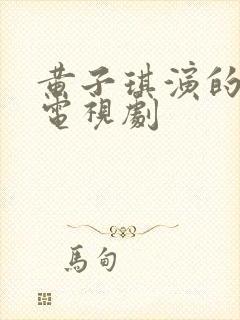 黄子琪演的
電視劇
馬甸